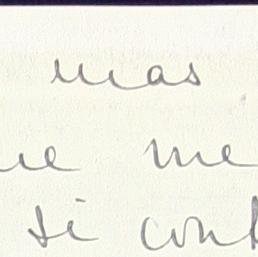 mas
ue me
si cont